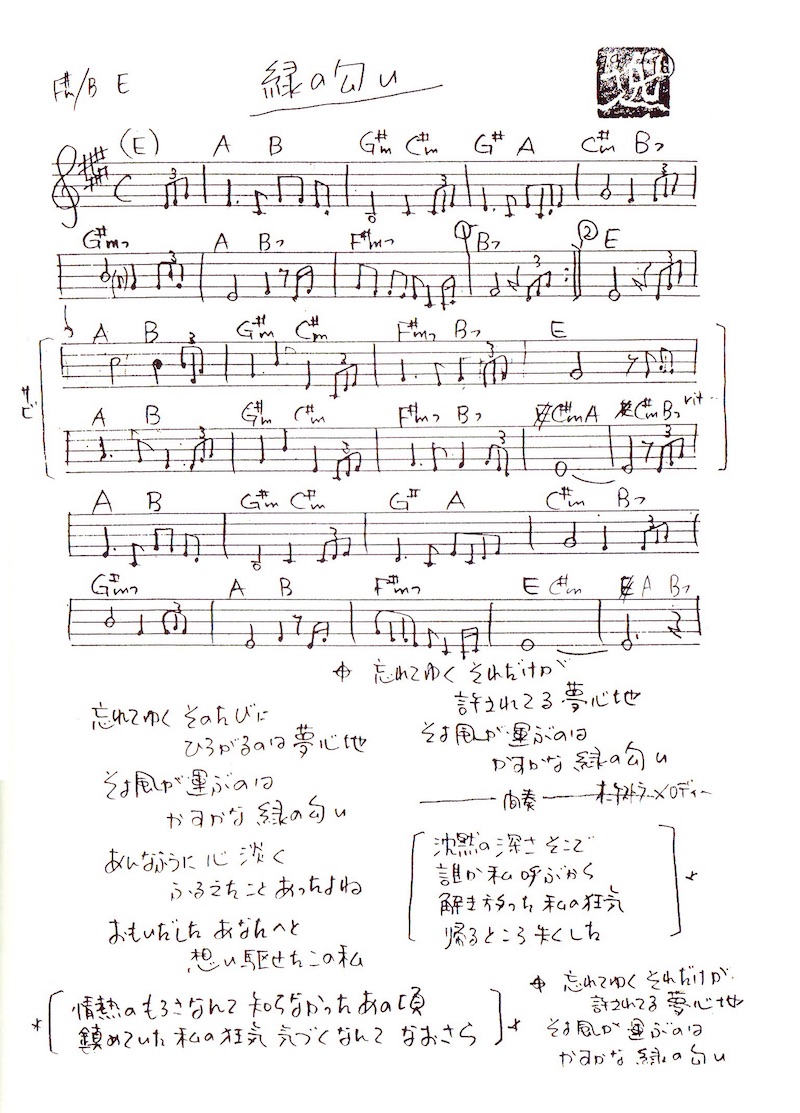 F#m/B E
緑の匂い
(E) A B G#m C#m G# A C#m B7
G#m7 A B7 F#m7 ① B7 ② E
A B G#m C#m F#m7 B7 E
サビ
A B G#m C#m F#m7 B7 C#m A C#m B7 rit..
A B G#m C#m G# A C#m B7
G#m7 A B F#m7 E C#m A B7
忘れてゆく それだけが
許されてる 夢心地
そよ風が運ぶのは
かすかな 緑の匂い
間奏 オーケストラ メロディー
忘れてゆく そのたびに
ひろがるのは 夢心地
そよ風が運ぶのは
かすかな 緑の匂い
あんなふうに 心 淡く
ふるえたこと あったよね
おもいだした あなたへと
想い駆せたこの私
沈黙の深さ そこで
誰か私呼ぶから
解き放った 私の狂気
帰るところ 失くした
情熱のもろさなんて 知らなかったあの頃
鎮めていた 私の狂気 気づくなんて なおさら
忘れてゆく それだけが
許されてる 夢心地
そよ風が 運ぶのは
かすかな 緑の匂い